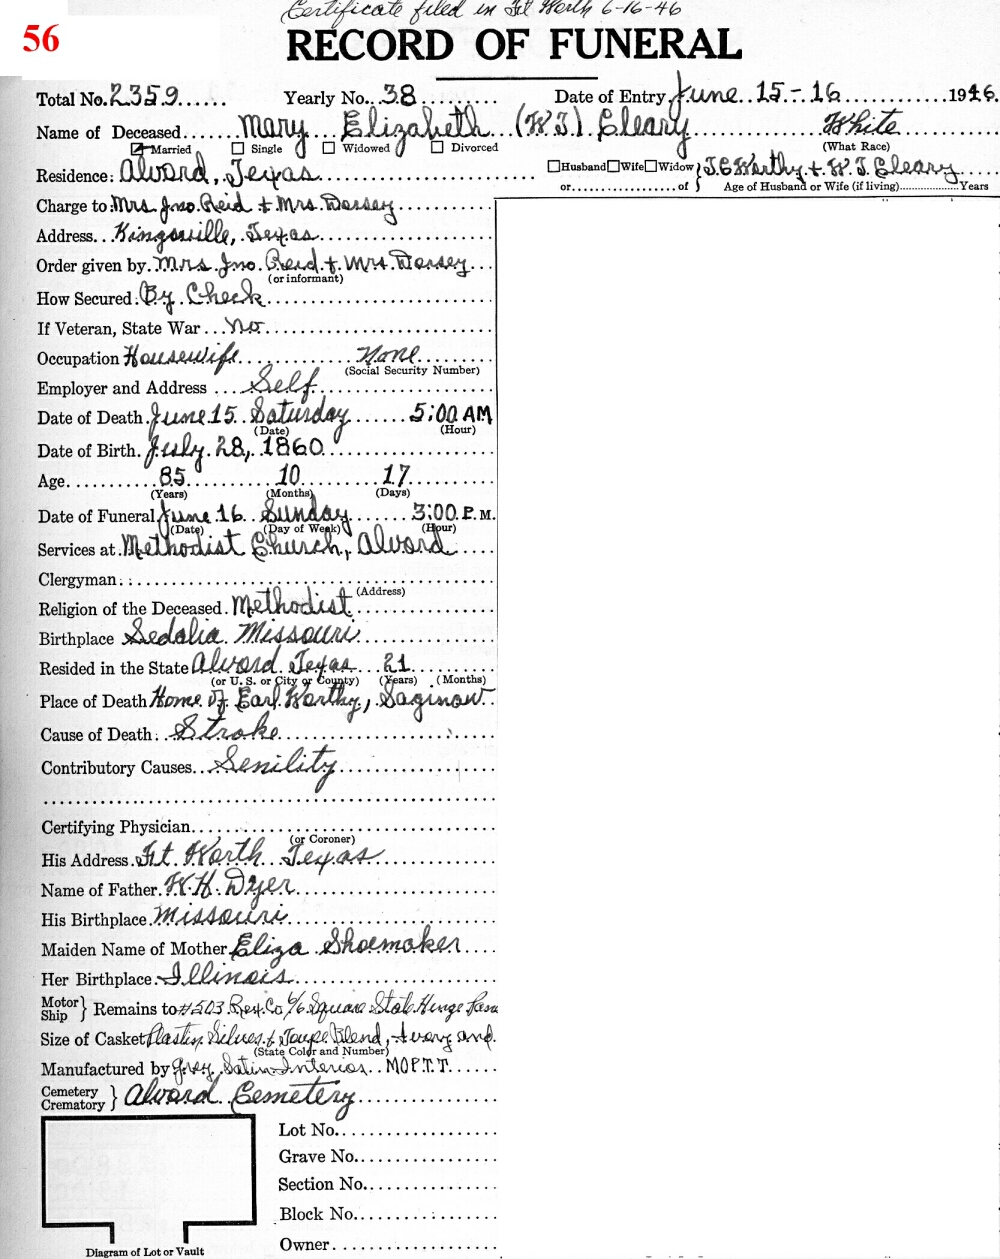 Certificate filed in Ft Worth 6-16-46
56
RECORD OF FUNERAL
Total No. 2359 Yearly No. 38 Date of Entry June 15-16 1946
Name of Deceased Mary Elizabeth (W.J.) Cleary White
Married Single Widowed Divorced (What Race)
Residence: Alvord, Texas Husband Wife Widow } J.C Worthy + W. J. Cleary
or of Age of Husband or Wife (if living) Years
Charge to: Mrs. Jno. Reid + Mrs. Dorsey
Address Kingsville, Texas
Order given by Mrs. Jno. Reid + Mrs. Dorsey
(or informant)
How Secured: By Check
If Veteran, State War No
Occupation Housewife None
(Social Security Number)
Employer and Address Self
Date of Death June 15 Saturday 5:00 AM
(Date) (Hour)
Date of Birth July 28, 1860
Age 85 10 17
(Years) (Months) (Days)
Date of Funeral June 16 Sunday 3:00 P.M.
(Date) (Day of Week) (Hour)
Services at Methodist Church, Alvord
Clergyman:
(Address)
Religion of the Deceased Methodist
Birthplace Sedalia Missouri
Resided in the State Alvord Texas 21
(or U. S. or City or County) (Years) (Months)
Place of Death Home of Earl Worthy, Saginaw
Cause of Death: Stroke
Contributory Causes Senility
Certifying Physician
(or Coroner)
His Address Ft. Worth Texas
Name of Father W. H. Dyer
His Birthplace Missouri
Maiden Name of Mother Eliza Shoemaker
Her Birthplace Illinois
Motor
Ship } Remains to #503 Rex. Co 6/6 Square Hinge
Size of Casket Silver + Taupe Blend, and
(State Color and Number)
Manufactured by Grey Satin Interior
Cemetery
Crematory } Alvord Cemetery
Lot No.
Grave No.
Section No.
Block No.
Owner
Diagram of Lot or Vault